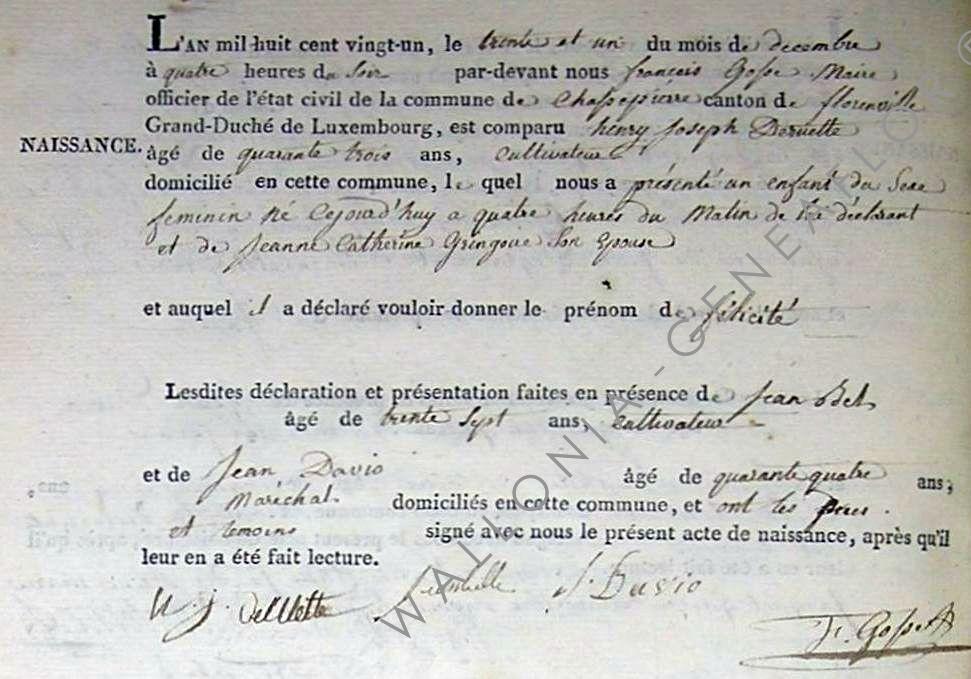 L'AN mil huit cent vingt-un, le trente et un du mois de decembre
à quatre heures du soir par-devant nous françois Gosse Maire
officier de l'état civil de la commune de Chassepierre canton de florenville
Grand-Duché de Luxembourg, est comparu henry Joseph Deruette
NAISSANCE.
âgé de quarante trois ans, cultivateur
domicilié en cette commune, le quel nous a présenté un enfant du Sexe
feminin né Cejourd'huy a quatre heures du Matin de lui déclarant
et de Jeanne Catherine Gringoire Son Epouse
et auquel il a déclaré vouloir donner le prénom de félicité
Lesdites déclaration et présentation faites en présence de Jean
âgé de trente Sept ans, cultivateur
et de Jean Davio âgé de quarante quatre ans,
Maréchal domiciliés en cette commune, et ont les peres
et temoins signé avec nous le présent acte de naissance, après qu'il
leur en a été fait lecture.
H. J. J. Davio
F. Gosset
WALLONIA - GENEALOG